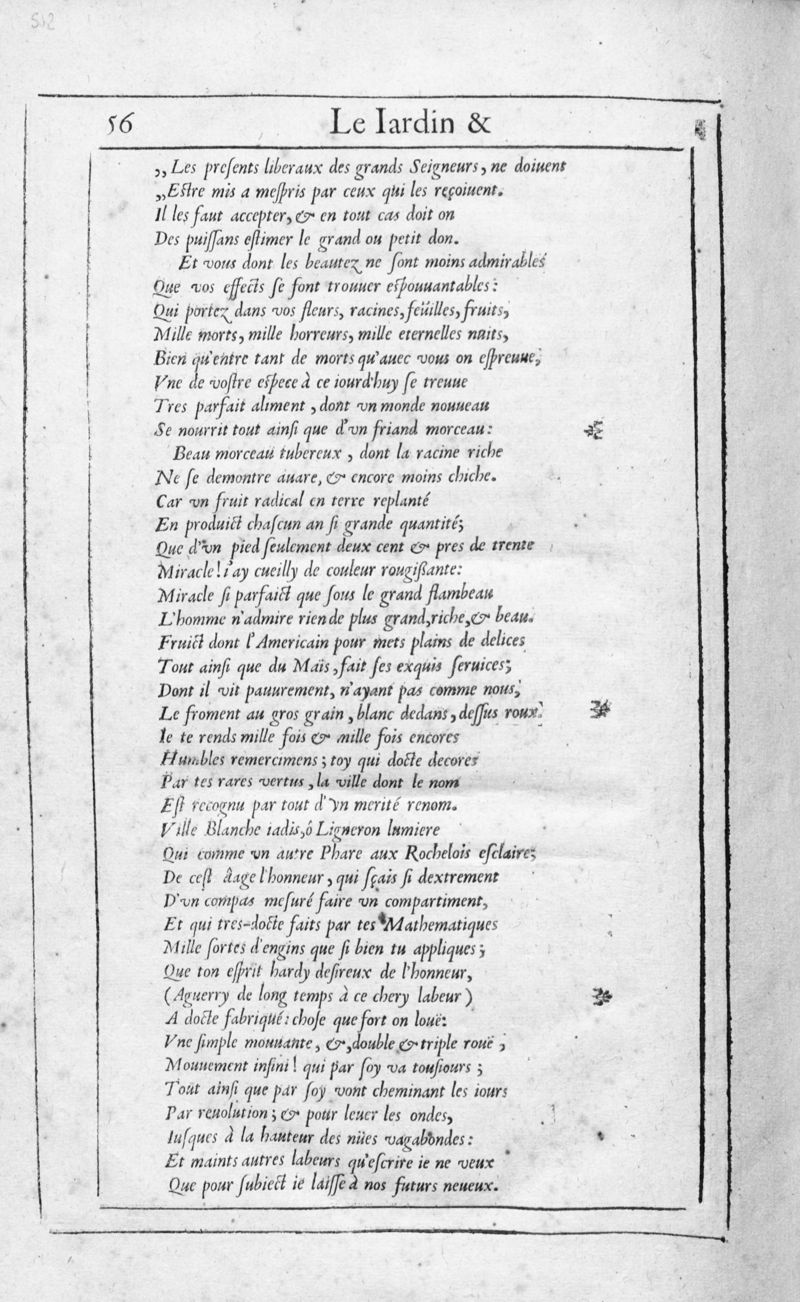 512
56 Le Iardin &
„Les preſents liberaux des grands Seigneurs, ne doiuent
„Eſtre mis a meſpris par ceux qui les reçoiuent.
Il les faut accepter, & en tout cas doit on
Des puiſſans eſtimer le grand ou petit don.
Et vous dont les beautez ne ſont moins admirables
Que vos effects ſe font trouuer eſpouuantables:
Qui portez dans vos fleurs, racines, feüilles, fruits,
Mille morts, mille horreurs, mille eternelles nuits,
Bien qu'entre tant de morts qu'auec vous on eſpreuue,
Vne de voſtre eſpece à ce iourd'huy ſe treuue
Tres parfait aliment, dont vn monde nouueau
Se nourrit tout ainſi que d'vn friand morceau:
Beau morceau tubereux, dont la racine riche
Ne ſe demontre auare, & encore moins chiche.
Car vn fruit radical en terre replanté
En produict chaſcun an ſi grande quantité;
Que d'vn pied ſeulement deux cent & pres de trente
Miracle! i'ay cueilly de couleur rougiſſante:
Miracle ſi parfaict que ſous le grand flambeau
L'homme n'admire rien de plus grand, riche, & beau.
Fruict dont l'Americain pour mets plains de delices
Tout ainſi que du Maïs, fait ſes exquis ſeruices;
Dont il vit pauurement, n'ayant pas comme nous,
Le froment au gros grain, blanc dedans, deſſus roux.
Ie te rends mille fois & mille fois encores
Humbles remercimens; toy qui docte decores
Par tes rares vertus, la ville dont le nom
Eſt recognu par tout d'vn merité renom.
Ville Blanche iadis, ô Ligneron lumiere
Qui comme vn autre Phare aux Rochelois eſclaire;
De ceſt aage l'honneur, qui ſçais ſi dextrement
D'vn compas meſuré faire vn compartiment,
Et qui tres-docte faits par tes Mathematiques
Mille ſortes d'engins que ſi bien tu appliques;
Que ton eſprit hardy deſireux de l'honneur,
(Aguerry de long temps à ce chery labeur)
A docte fabriqué: choſe que fort on louë:
Vne ſimple mouuante, &, double & triple rouë,
Mouuement infini! qui par ſoy va touſiours;
Tout ainſi que par ſoy vont cheminant les iours
Par reuolution; & pour leuer les ondes,
Iuſques à la hauteur des nües vagabondes:
Et maints autres labeurs qu'eſcrire ie ne veux
Que pour ſubiect ie laiſſe à nos futurs neueux.